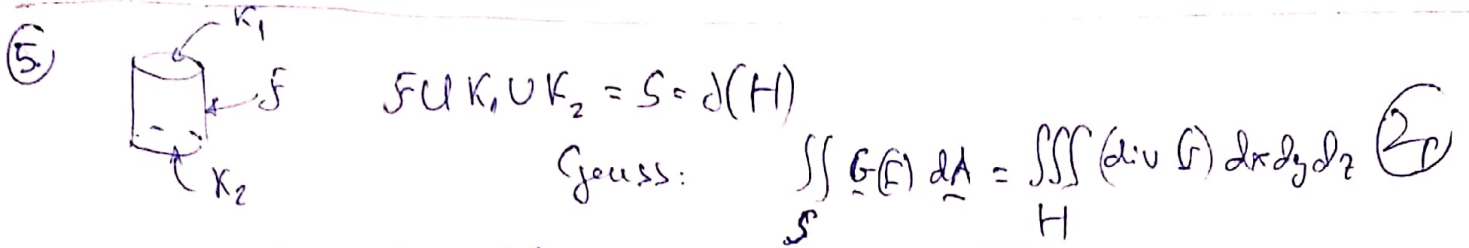 5.
K₁
F
K₂
F ∪ K₁ ∪ K₂ = S = ∂(H)
Gauss: ∬ G(r) dA = ∭ (div G) dx dy dz 2p
S H